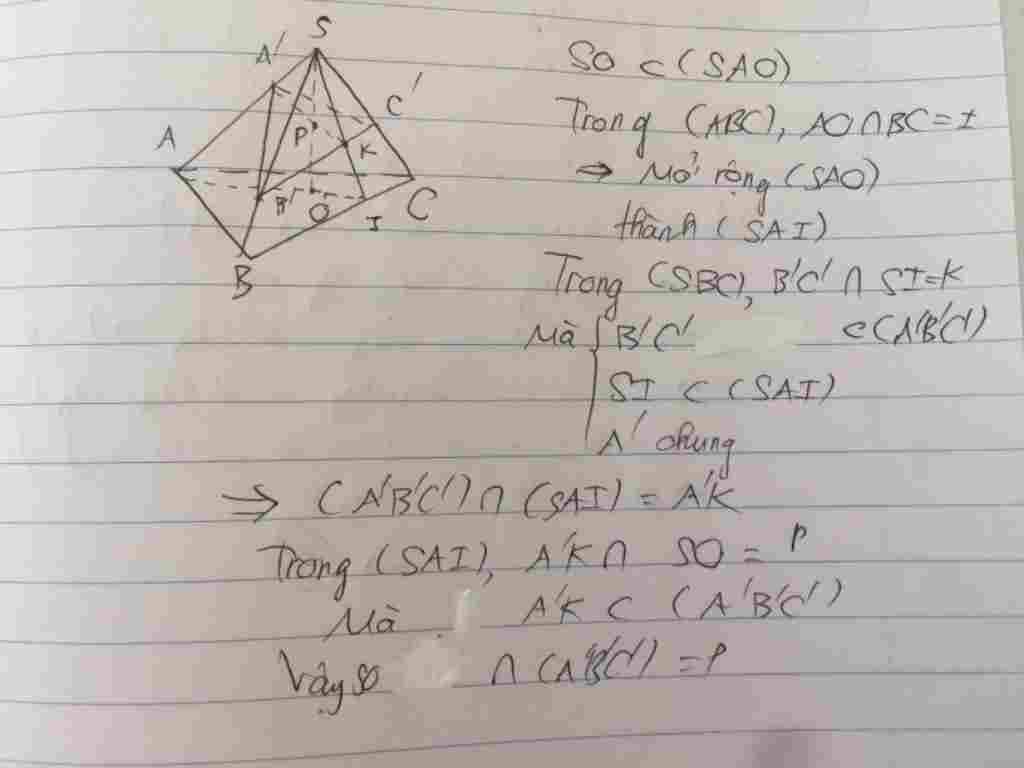 S
A'
C'
A
P
K
B'
O
I
C
B
SO ⊂ (SAO)
Trong (ABC), AO ∩ BC = I
⇒ Mở rộng (SAO)
thành (SAI)
Trong (SBC), B'C' ∩ SI = K
Mà { B'C' ⊂ (A'B'C')
SI ⊂ (SAI)
A' chung
⇒ (A'B'C') ∩ (SAI) = A'K
Trong (SAI), A'K ∩ SO = P
Mà A'K ⊂ (A'B'C')
Vậy SO ∩ (A'B'C') = P